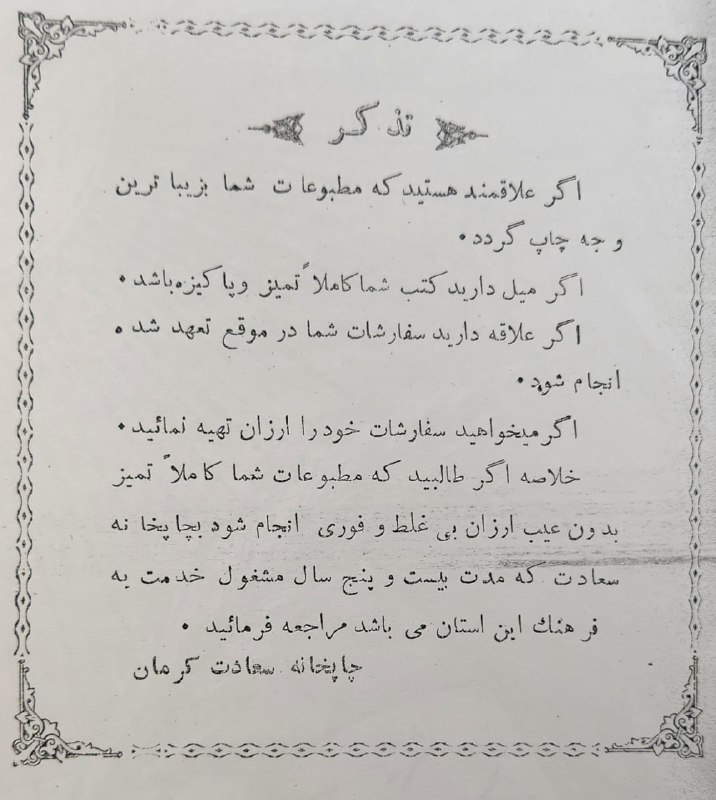 تذکر
اگر علاقمند هستید که مطبوعات شما بزیبا ترین
وجه چاپ گردد.
اگر میل دارید کتب شما کاملاً تمیز و پاکیزه باشد.
اگر علاقه دارید سفارشات شما در موقع تعهد شده
انجام شود.
اگر میخواهید سفارشات خود را ارزان تهیه نمائید.
خلاصه اگر طالبید که مطبوعات شما کاملاً تمیز
بدون عیب ارزان بی غلط و فوری انجام شود بچاپخانه
سعادت که مدت بیست و پنج سال مشغول خدمت به
فرهنك این استان می باشد مراجعه فرمائید.
چاپخانه سعادت کرمان